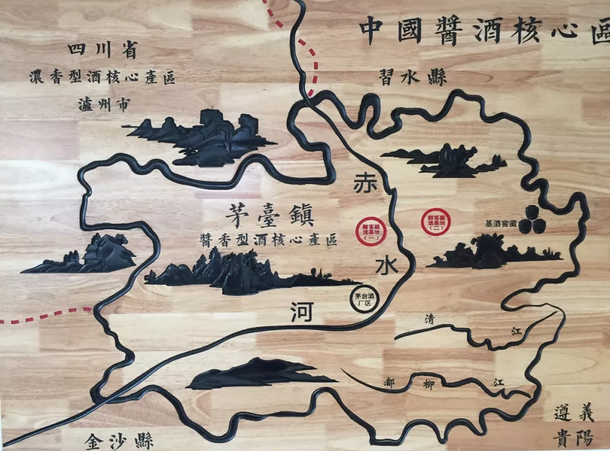 中國醬酒核心區
四川省
濃香型酒核心產區
瀘州市
習水縣
赤
水
河
茅臺鎮
醬香型酒核心產區
基地
(一)
基地
(二)
基酒窖藏
茅台酒
厂区
清 江
都 柳 江
金沙縣
遵義
貴陽